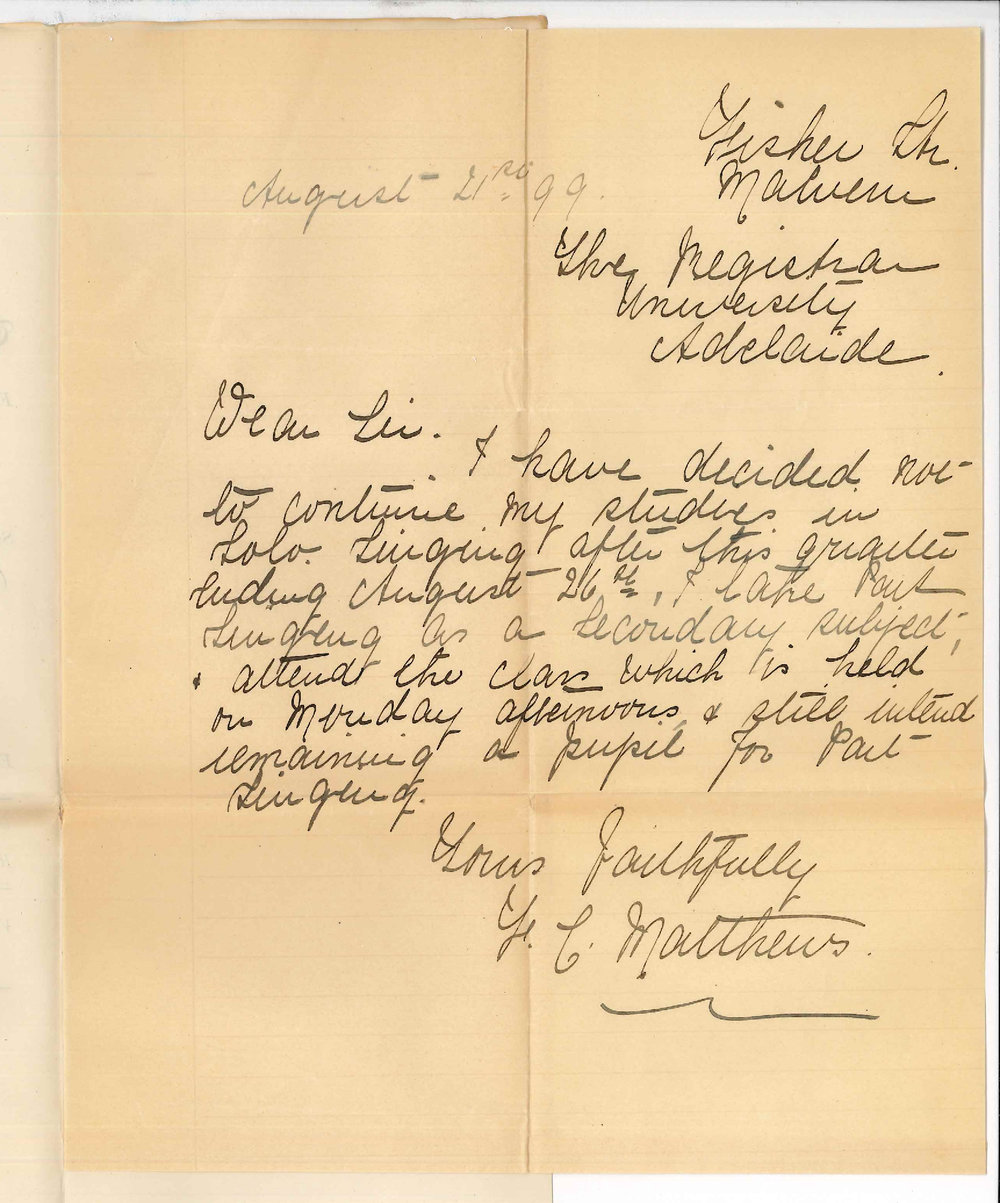 Fisher Str.
Malvern
August 21st 99.
The Registrar
University
Adelaide.
Dear Sir.
I have decided not
to continue my studies in
Solo Singing after this quarter
ending August 26th, I take Part
Singing as a Secondary subject,
& attend the class which is held
on Monday afternoons, & still intend
remaining a pupil for Part
Singing.
Yours Faithfully
F. C. Matthews.